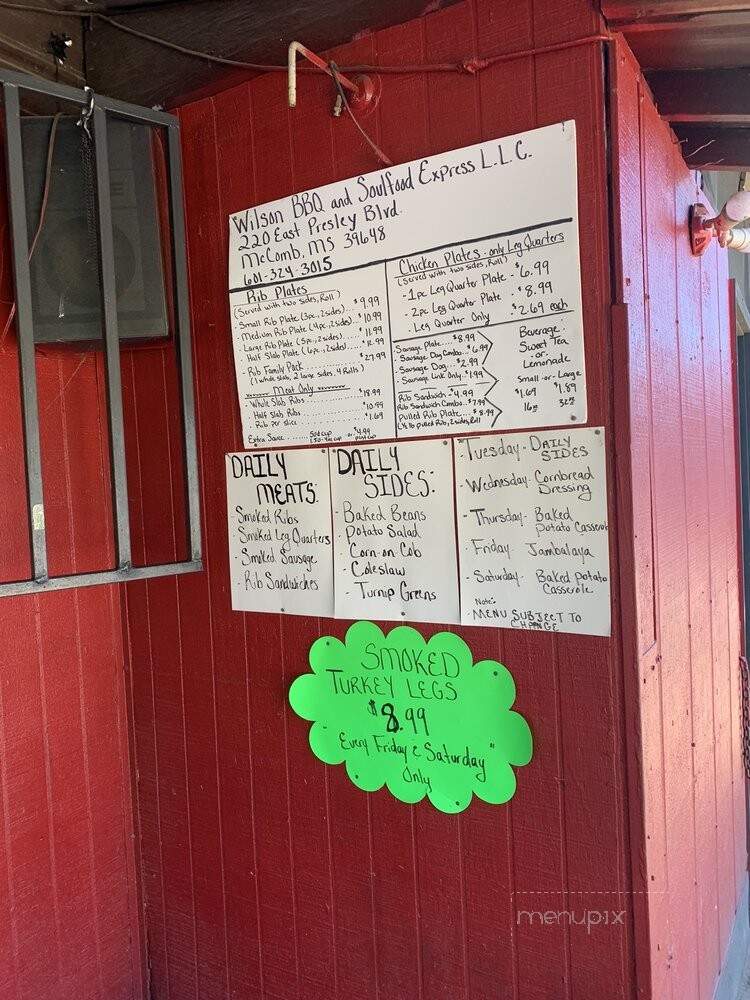 Wilson BBQ and Soulfood Express L.L.C.
220 East Presley Blvd.
McComb, MS 39648
601-324-3015
Rib Plates
(Served with two sides, Roll)
- Small Rib Plate (3pc, 2 sides)... $9.99
- Medium Rib Plate (4pc, 2 sides)... $10.99
- Large Rib Plate (5pc, 2 sides)... $11.99
- Half Slab Plate (6pc, 2 sides)...
- Rib Family Pack... $27.99
(1 whole slab, 2 large sides, 4 Rolls)
Meat Only
- Whole Slab Ribs... $18.99
- Half Slab Ribs... $10.99
- Rib per slice... $1.69
Extra Sauce
Chicken Plates - only Leg Quarters
(Served with two sides, Roll)
- 1pc Leg Quarter Plate - $6.99
- 2pc Leg Quarter Plate - $8.99
- Leg Quarter Only - $2.69 each
- Sausage Plate... $8.99
- Sausage Dog Combo... $6.99
- Sausage Dog... $2.99
- Sausage Link Only... $1.99
Rib Sandwich - $4.99
Rib Sandwich Combo... $7.99
Pulled Rib Plate... $8.99
(1/2 lb pulled Rib, 2 sides, Roll)
Beverage:
Sweet Tea
-or-
Lemonade
Small -or- Large
$1.69 $1.89
16oz 32oz
DAILY
MEATS:
- Smoked Ribs
- Smoked Leg Quarters
- Smoked Sausage
- Rib Sandwiches
DAILY
SIDES:
- Baked Beans
- Potato Salad
- Corn-on-Cob
- Coleslaw
- Turnip Greens
- Tuesday - DAILY
SIDES
- Wednesday - Cornbread
Dressing
- Thursday - Baked
Potato Casserole
- Friday - Jambalaya
- Saturday - Baked Potato
Casserole
Note:
- MENU SUBJECT TO
CHANGE
SMOKED
TURKEY LEGS
$8.99
"Every Friday & Saturday"
Only
menupix